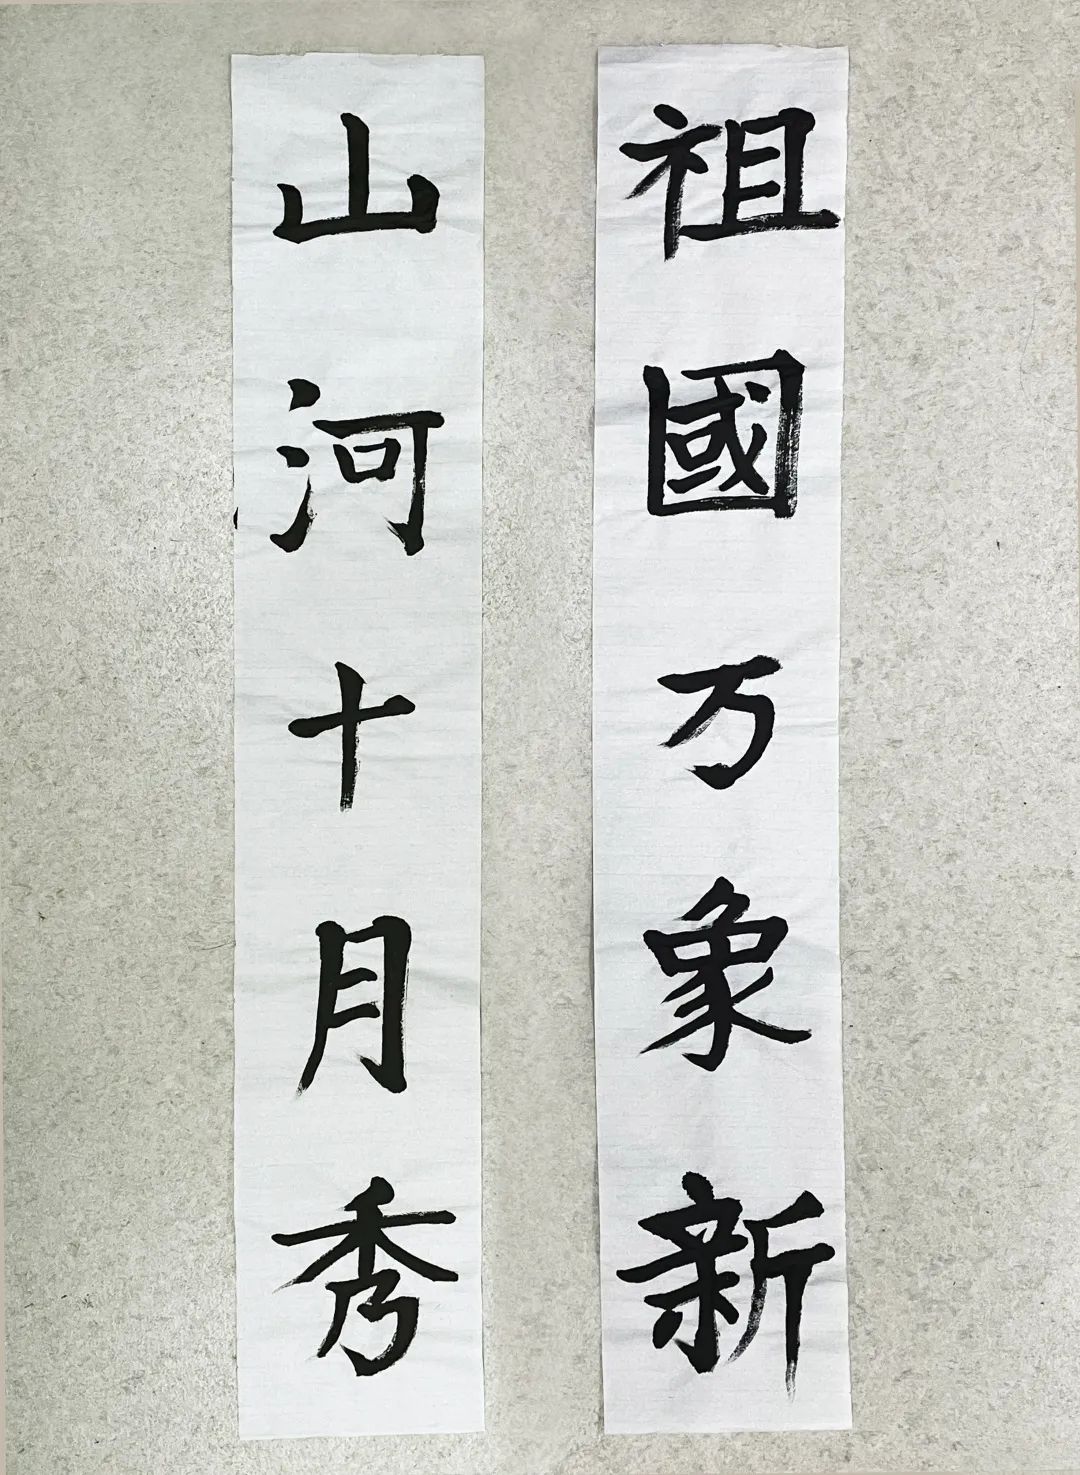 祖國万象新
山河十月秀